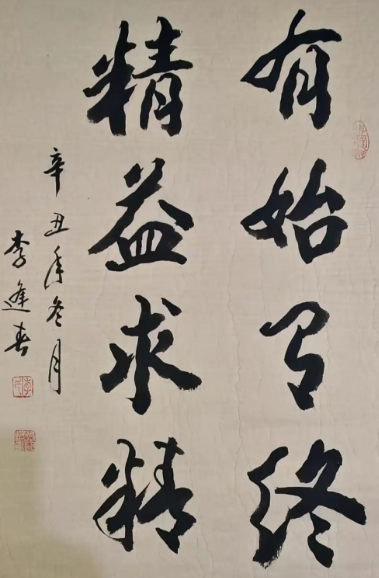 有始有终
精益求精
辛丑年冬月
李逢春